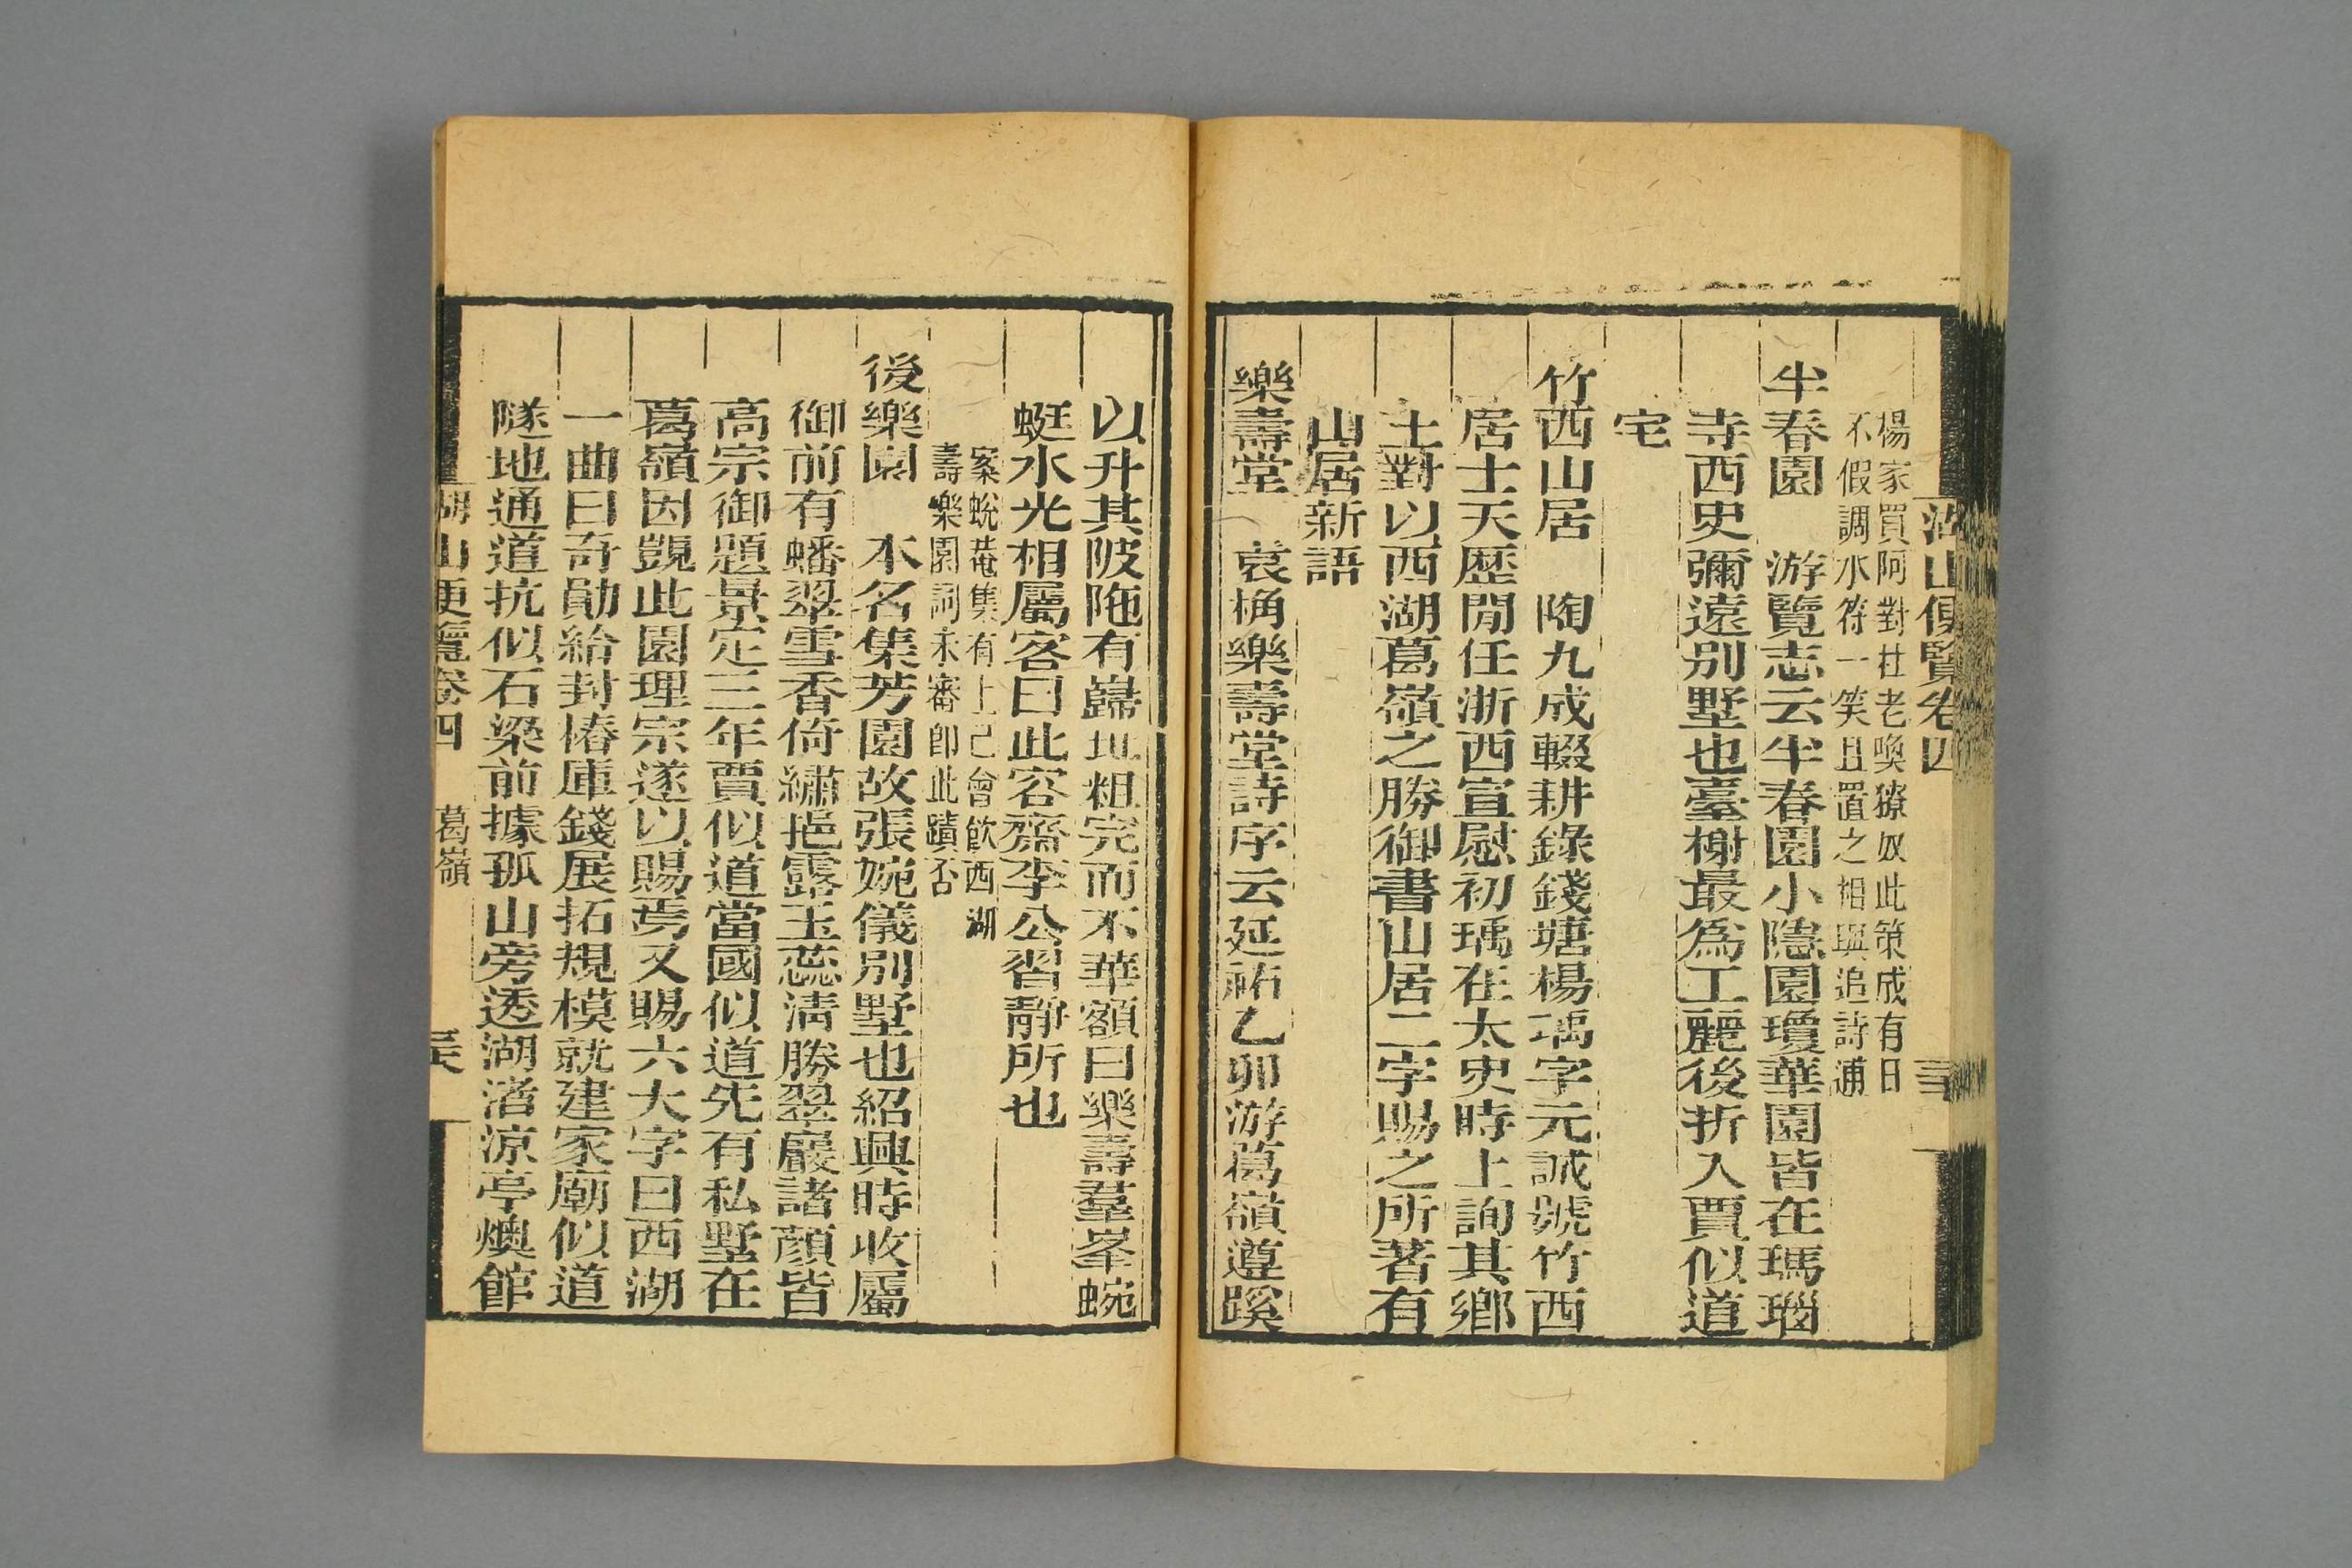 湖山便覽卷四
楊家買阿對杜老喚獠奴此策成有日
不假調水符一笑且置之相與追詩逋
半春園 游覽志云半春園小隱園瓊華園皆在瑪瑙
寺西史彌遠别墅也臺榭最爲工麗後折入賈似道
宅
竹西山居 陶九成輟耕錄錢塘楊瑀字元誠號竹西
居士天歷間任浙西宣慰初瑀在太史時上詢其鄉
土對以西湖葛嶺之勝御書山居二字賜之所著有
山居新語
樂壽堂 袁桷樂壽堂詩序云延祐乙卯游葛嶺遵蹊
以升其陂陁有巋址粗完而不華額曰樂壽羣峯蜿
蜓水光相屬客曰此容齋李公習靜所也
案蛻菴集有上巳會飲西湖
壽樂園詞未審卽此蹟否
後樂園 本名集芳園故張婉儀别墅也紹興時收屬
御前有蟠翠雪香倚繡挹露玉蕊淸勝翠巖諸顔皆
高宗御題景定三年賈似道當國似道先有私墅在
葛嶺因覬此園理宗遂以賜焉又賜六大字曰西湖
一曲曰奇勛給封樁庫錢展拓規模就建家廟似道
隧地通道抗似石梁前據孤山旁透湖渚涼亭燠館
湖山便覽卷四 葛嶺